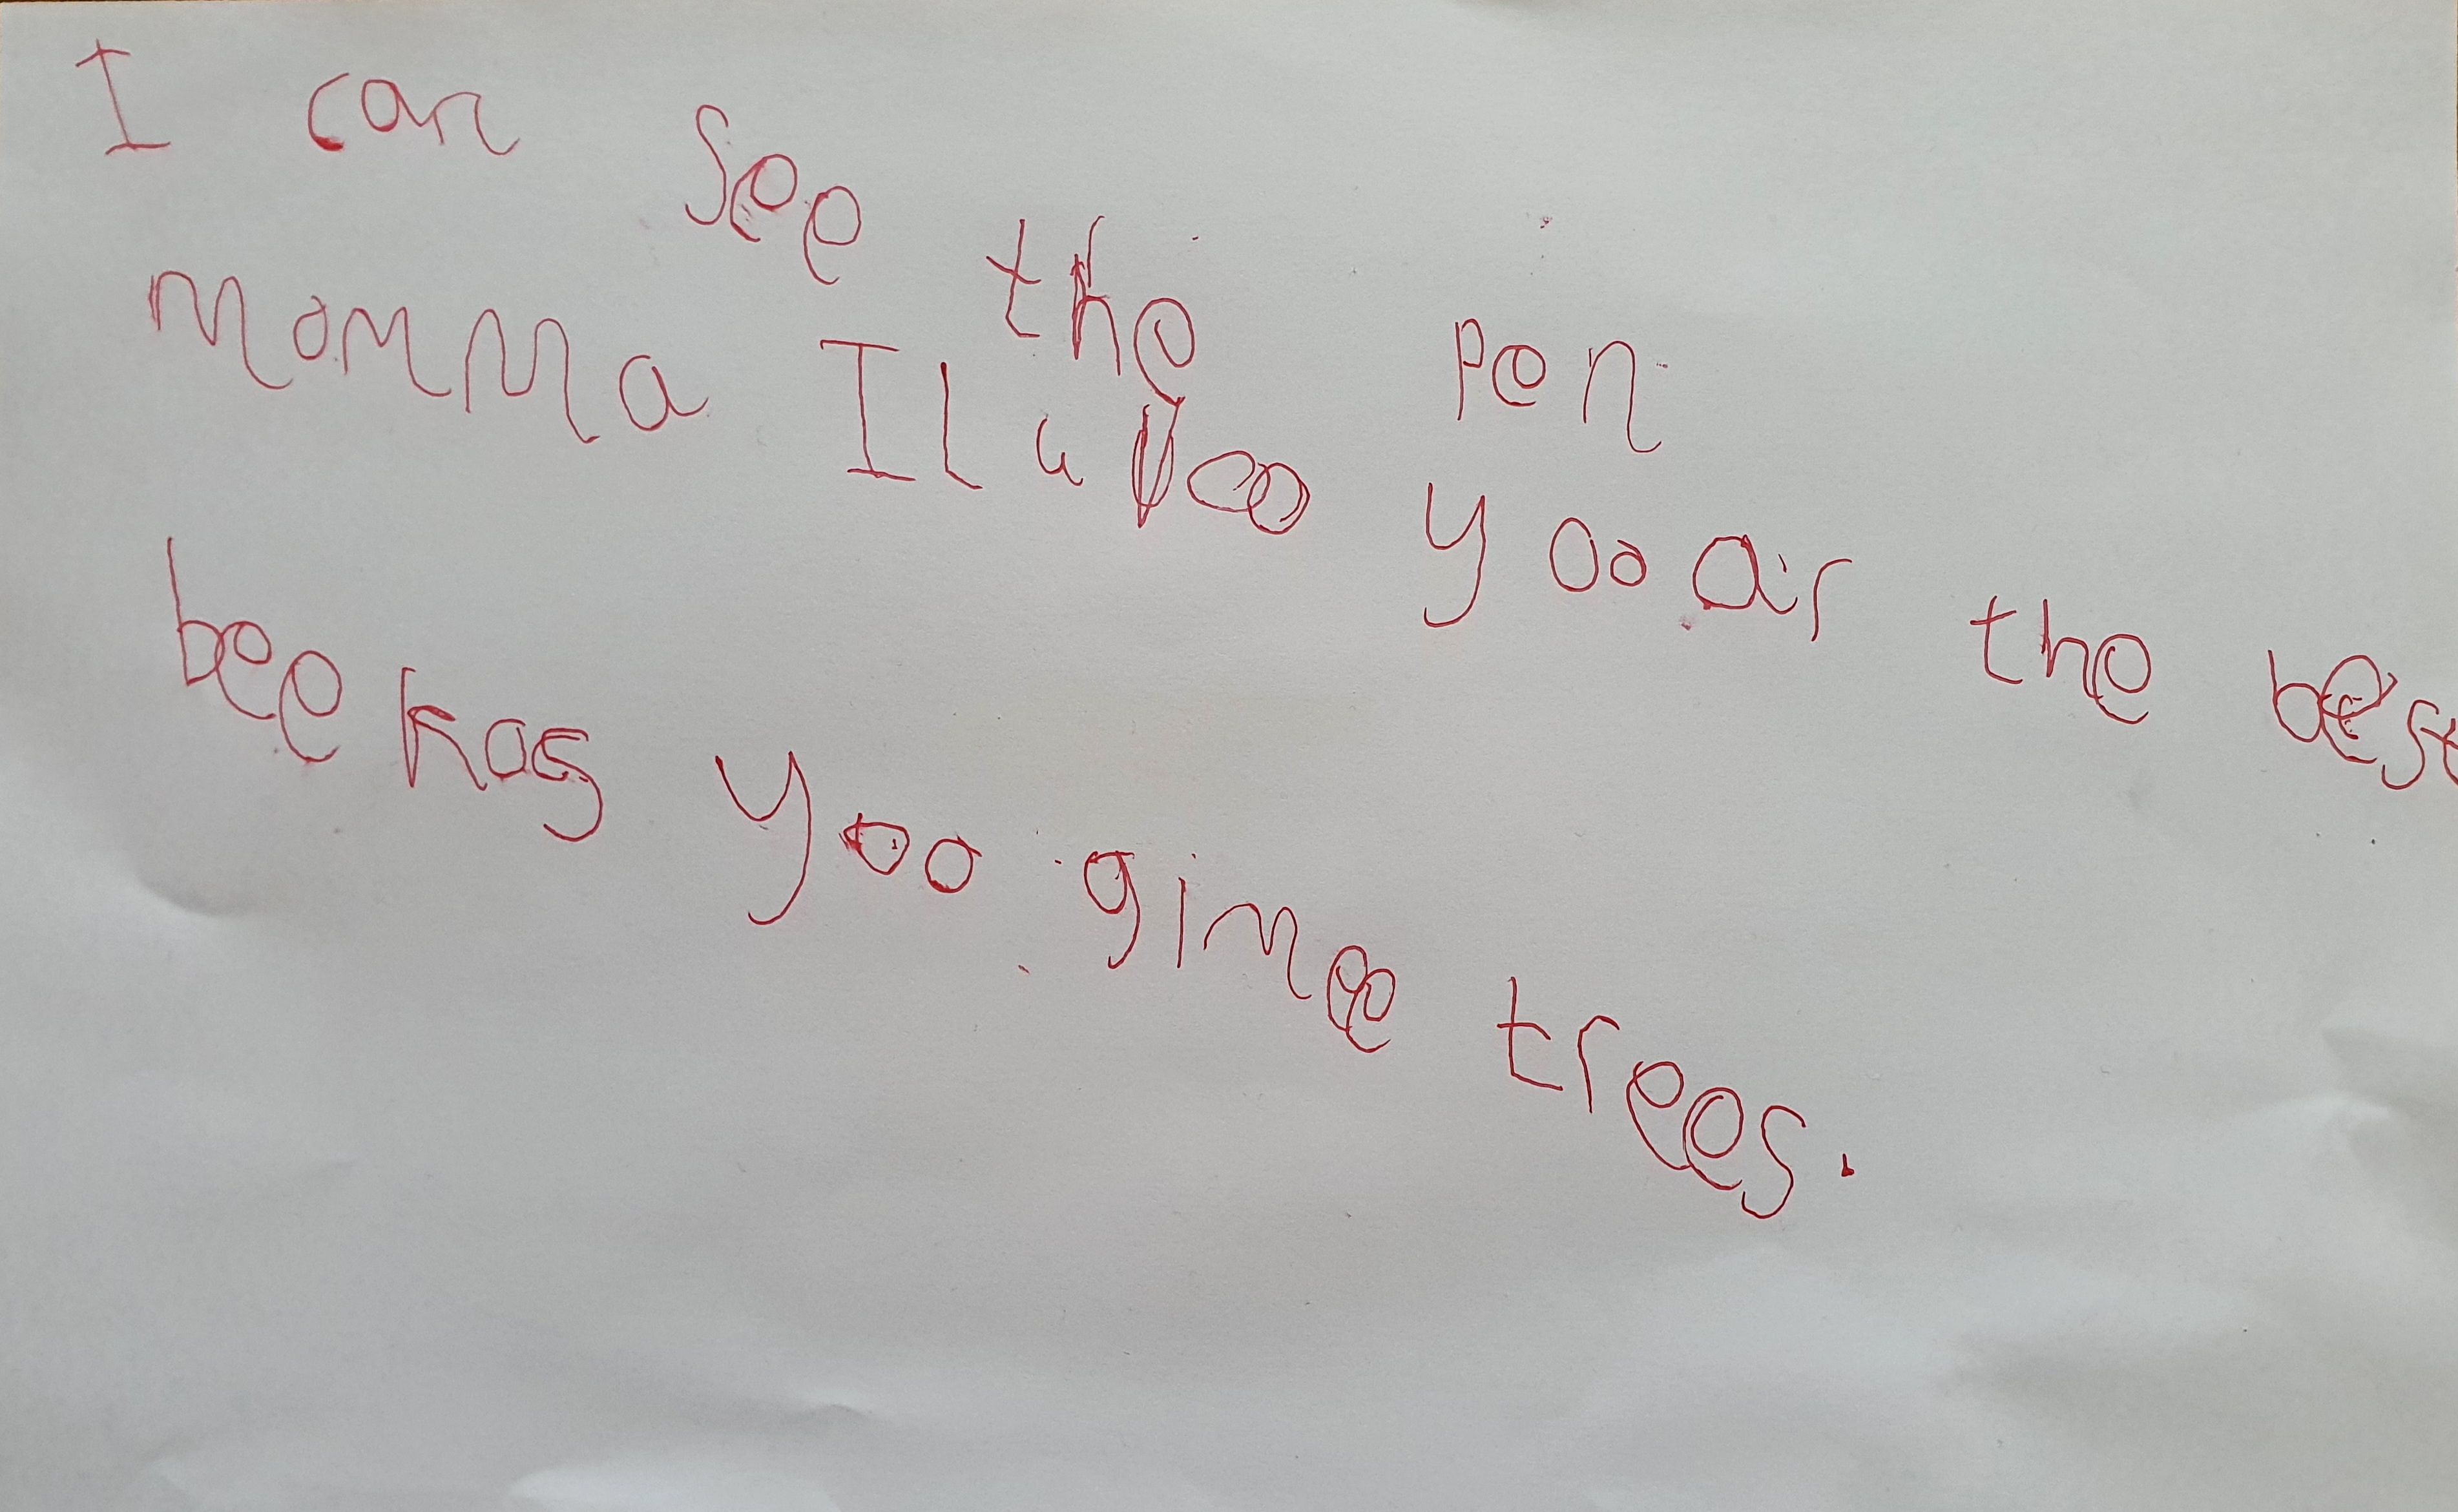 I can see the pen
momma I luvoo yoo air the best
beekos yoo gimee trees.